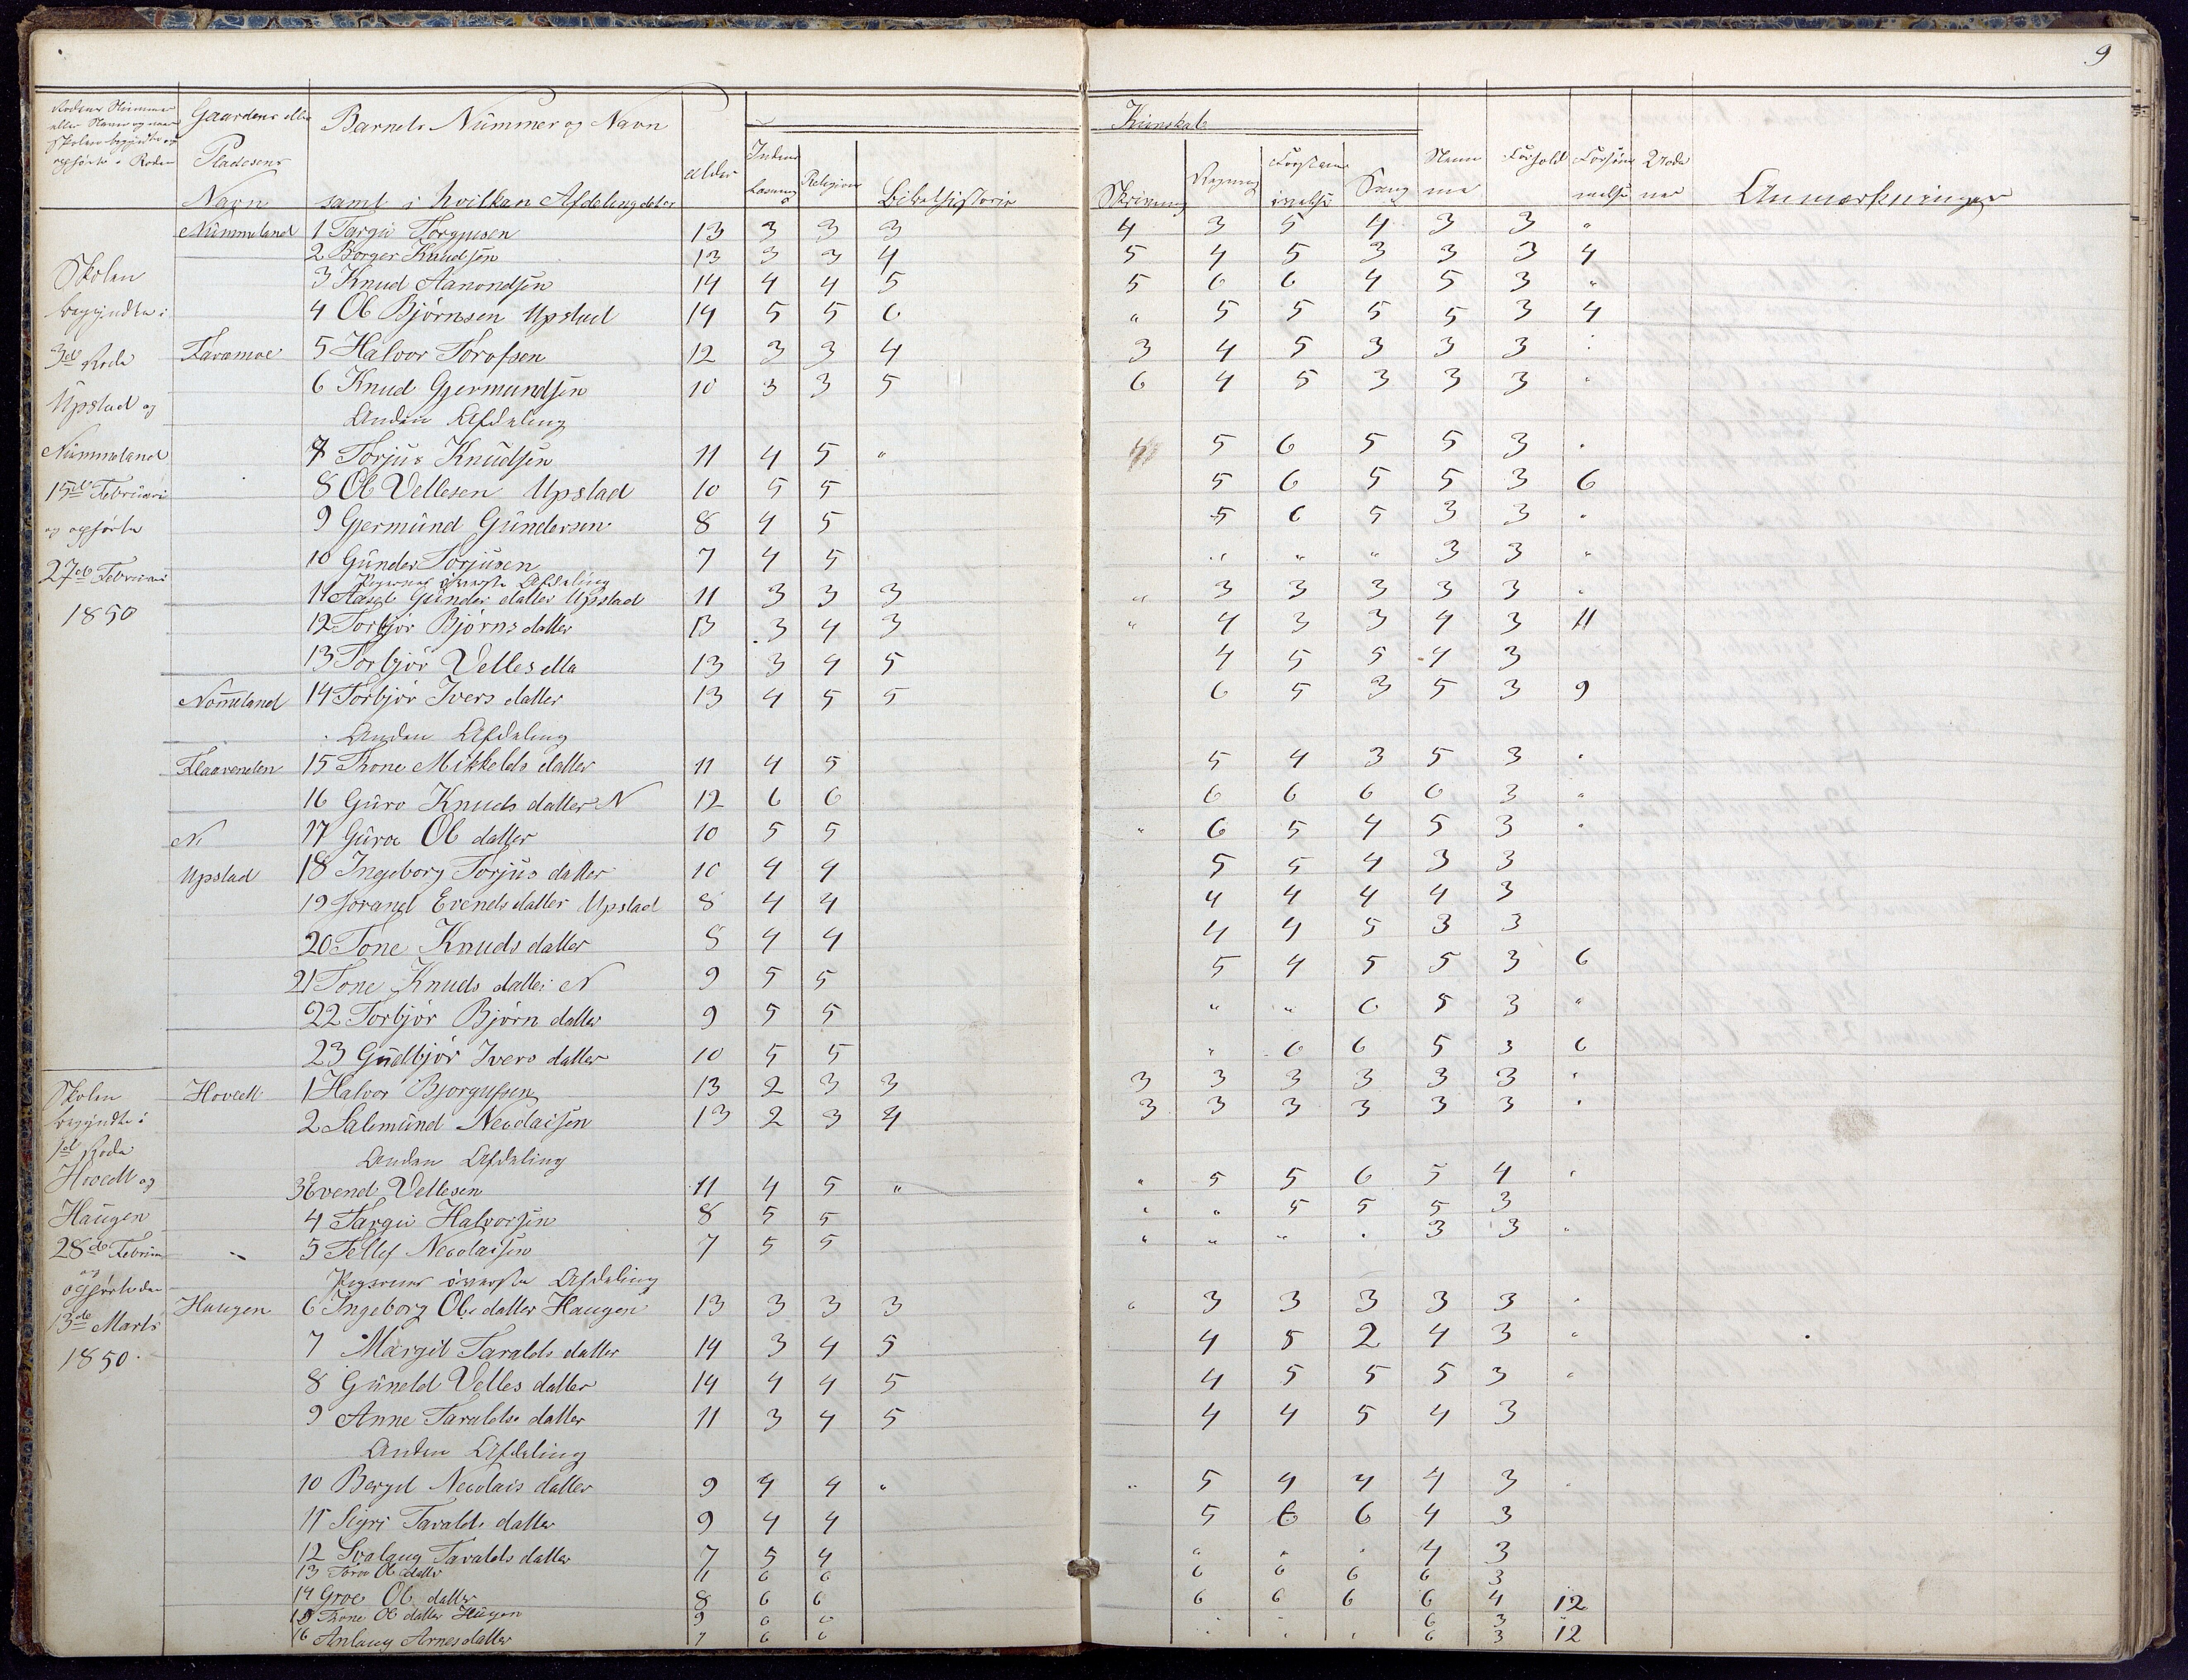 9
Gaardens eller
Pladesens
Navn
Barnets Nummer og Navn
samt i hvilken Afdeling det er
alder
Religion
Bibelhistorie
Kundskab
Skrivning
Regning
Sang
Forhold
Anmærkninger
Nummeland 1 Targu Torgusen 13 3 3 3 4 3 5 4 3 3 "
2 Borger Knudsen 13 3 3 4 5 4 5 3 3 3 4
Skolen 3 Knud Aanondsen 14 4 4 5 5 6 6 4 5 3 "
begyndte i 4 Ol Bjørnsen Upstad 14 5 5 6 " 5 5 5 5 3 4
3d Rode 5 Halvor 12 3 3 4 3 4 5 3 3 3
Upstad og 6 Knud Gjermundsen 10 3 3 5 6 4 5 3 3 3
Anden Afdeling
Nummeland 7 Torjus Knudsen 11 4 5 " 5 6 5 5 3
15de Februari 8 Ol Vellesen Upstad 10 5 5 5 6 5 5 3 6
og ophørte 9 Gjermund Gundersen 8 4 5 5 6 5 3 3
27de Februari 10 Gunder Torjusen 7 4 5 " " " 3 3 "
Pigernes øverste Afdeling
1850 11 Aasge Gunder datter Upstad 11 3 3 3 " 3 3 3 3 3
12 Torbjør Bjørns datter 13 3 4 3 " 4 3 3 4 3 11
13 Torbjør Velles 13 3 4 5 4 5 5 4 3
Nommeland 14 Torbjør Ivers datter 13 4 5 5 6 5 3 5 3 9
Anden Afdeling
Flaarenden 15 Thone Mikkels datter 11 4 5 5 4 3 5 3
16 Guro Knuds datter N 12 6 6 6 6 6 6 3 "
N 17 Guroe Ol datter 10 5 5 " 6 5 4 5 3
Upstad 18 Ingeborg Torjus datter 10 4 4 5 5 4 3 3
19 Jorand Evends datter Upstad 8 4 4 4 4 4 4 3
20 Tone Knuds datter 8 4 4 4 4 5 3 3
21 Tone Knuds datter N 9 5 5 5 4 5 5 3 6
22 Torbjør Bjørn datter 9 5 5 " " 6 5 3 "
23 Gudbjør Ivers datter 10 5 5 " 6 6 5 3 6
Skolen Hovedt 1 Halvor Bjorgufsen 13 2 3 3 3 3 3 3 3 3
begyndte i 2 Salemund Neodaisen 13 2 3 4 3 3 3 3 3 3
1st Rode
Anden Afdeling
Hovedt og 3 Evend Vellesen 11 4 5 " " 5 5 6 5 4
Haugen 4 Targu Halvorsen 8 5 5 " " 5 5 5 3
28de Februar 5 Tellef Neodaisen 7 5 5 " " " 3 3
og ophørte den
Pigernes øverste Afdeling
Haugen 6 Ingeborg Ole datter Haugen 13 3 3 3 3 3 3 3 3
13de Marts 7 Margit Taralds datter 14 3 4 5 4 5 2 4 3 "
1850 8 Guneld Velles datter 14 4 4 5 4 5 5 5 3
9 Anne Taralds datter 11 3 4 5 4 4 5 4 3
Anden Afdeling
10 Bergit Neodais datter 9 4 4 " " 5 4 4 4 3
11 Sigri Taralds datter 9 4 4 5 6 6 4 3
12 Svalaug Taralds datter 7 5 4 4 3
13 Ol datter 11 6 6 6 6 6 6 3
14 Groe Ol datter 8 6 6 6 6 6 6 4 12
15 Thone Ol datter Haugen 9 6 6 6 3
16 Anlaug Arnesdatter 7 6 6 6 3 12